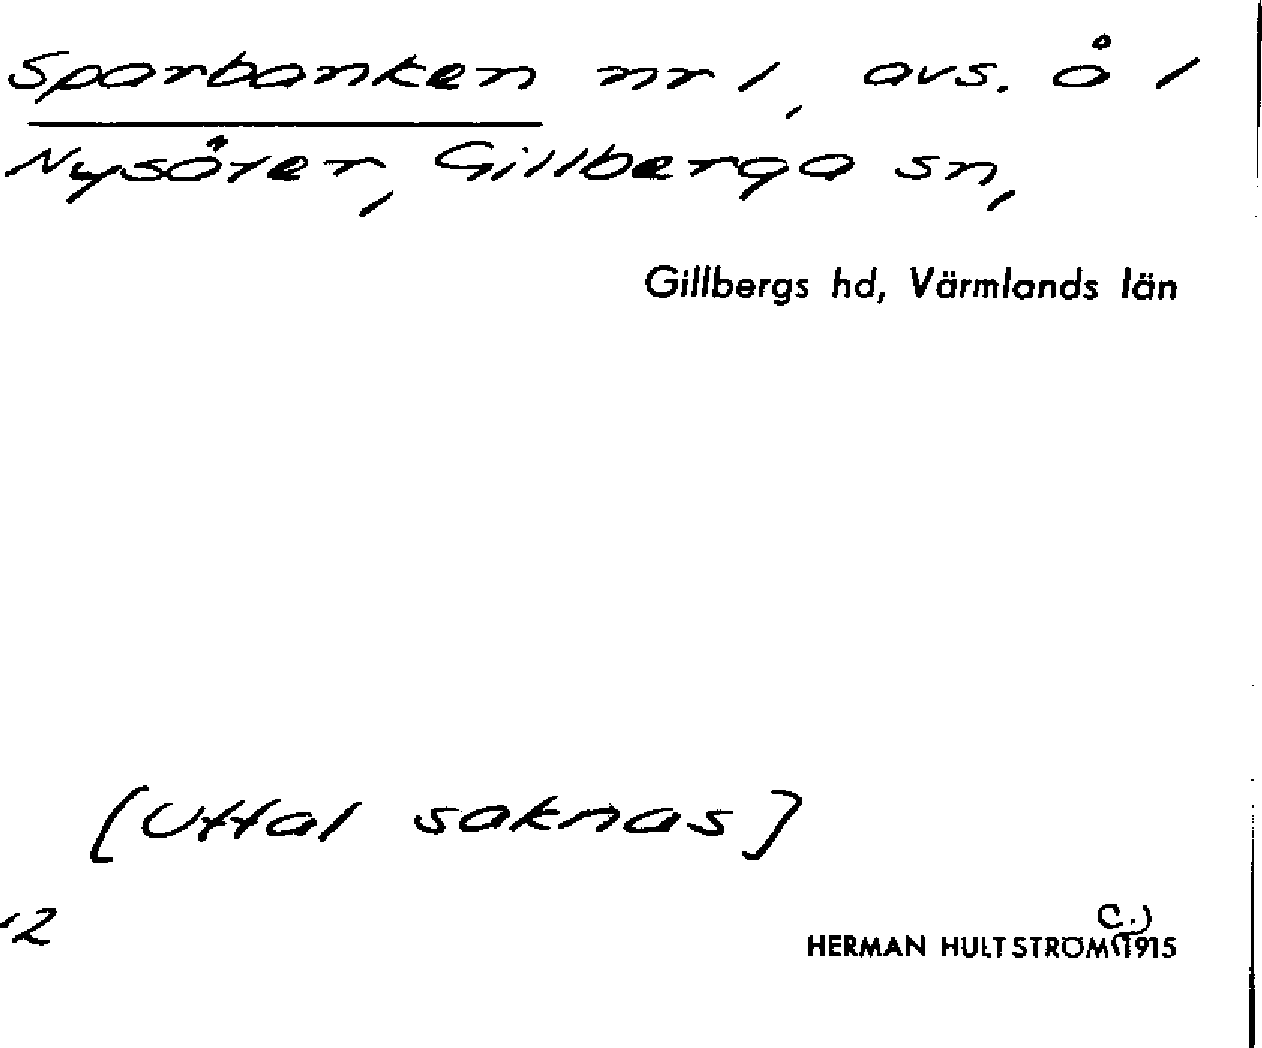 Sparbanken nr 1, avs. å 1
Nysäter, Gillberga sn,
Gillbergs hd, Värmlands län
[Uttal saknas]
12
HERMAN HULTSTRÖM (c.) 1915